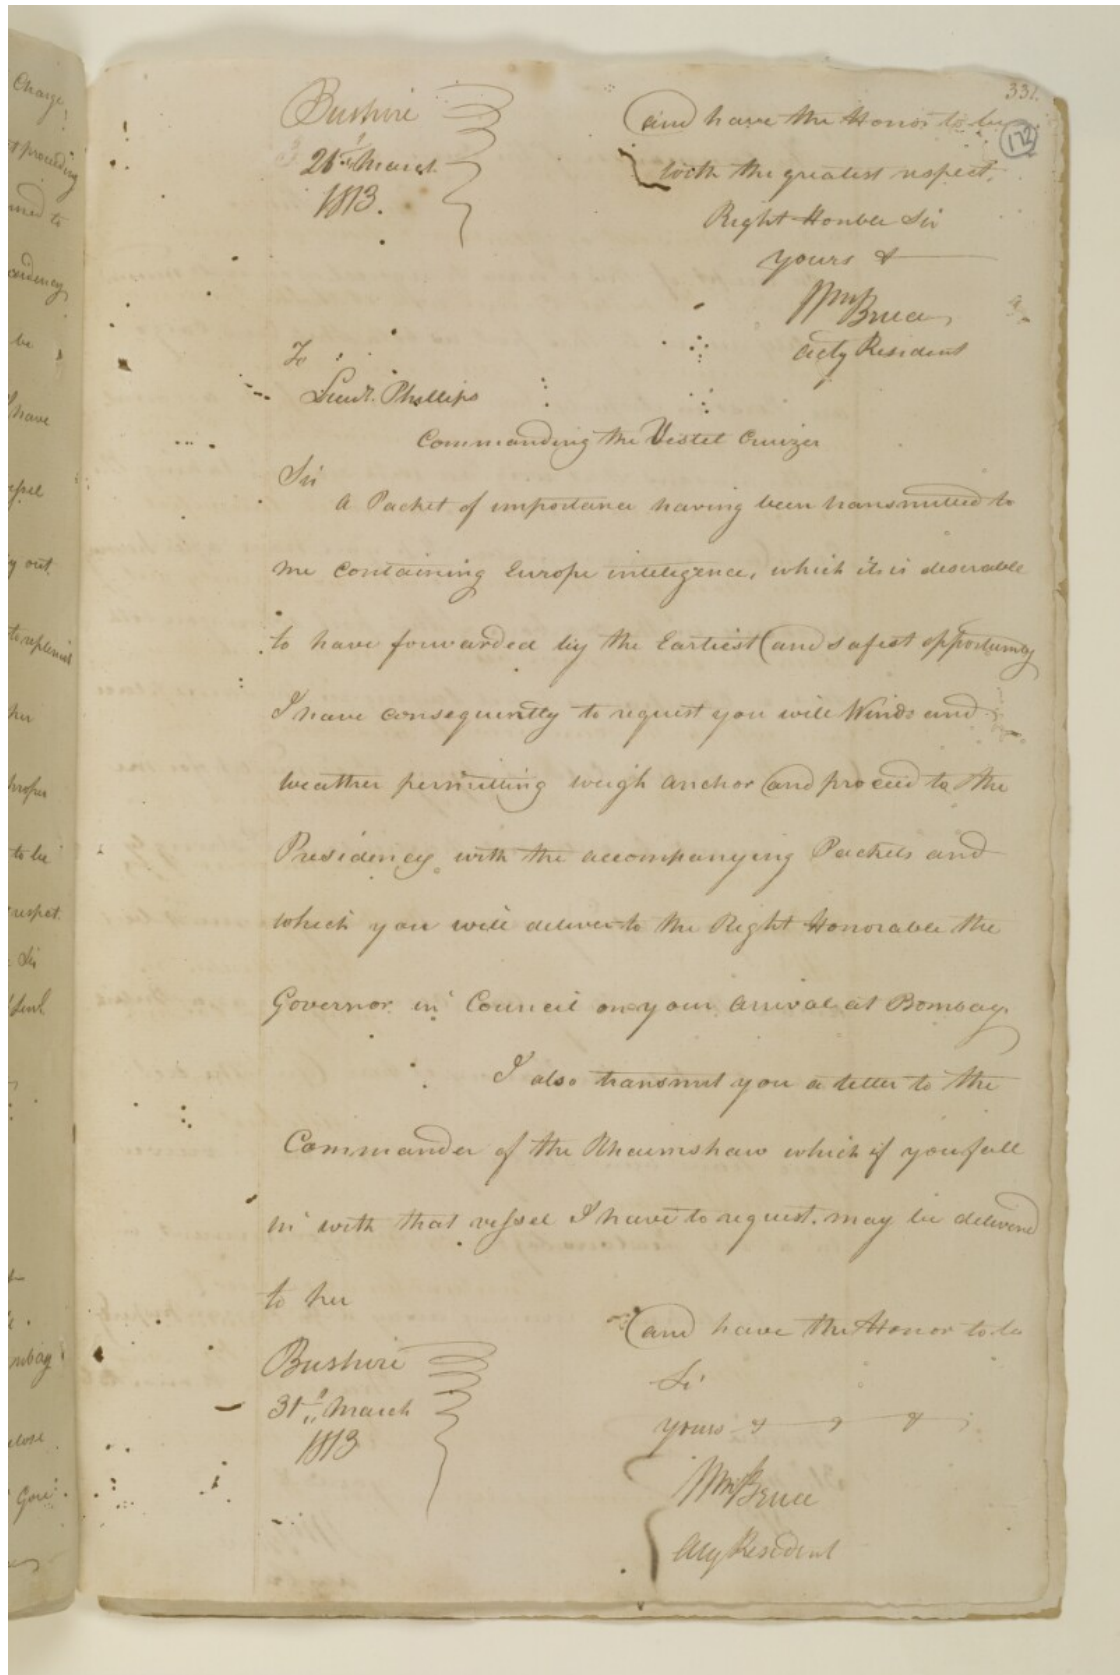 331.
172
and have the Honor to be
with the greatest respect,
Right Honble Sir
yours &
Wm Bruce
Actg Resident
Bushire
March
1813.
To
Lieut. Phillips
Commanding the Vestel Cruizer
Sir
A Packet of importance having been transmitted to
me containing Europe inteligence, which it is desirable
to have forwarded by the Earliest and safest opportunity
I have consequently to request you will Winds and
weather permitting weigh anchor and proceed to the
Presidency with the accompanying Packets and
which you will deliver to the Right Honorable the
Governor in Council on your arrival at Bombay.
I also transmit you a letter to the
Commander of the which if you fall
in with that vessel I have to request. may be delivered
to her
and have the Honor to be
Sir
yours & & & &
Wm Bruce
Actg Resident
Bushire
31st March
1813
Charge,
proceeding
to
be
have
out.
to replenish
proper
to be
respect.
Sir
Gov: